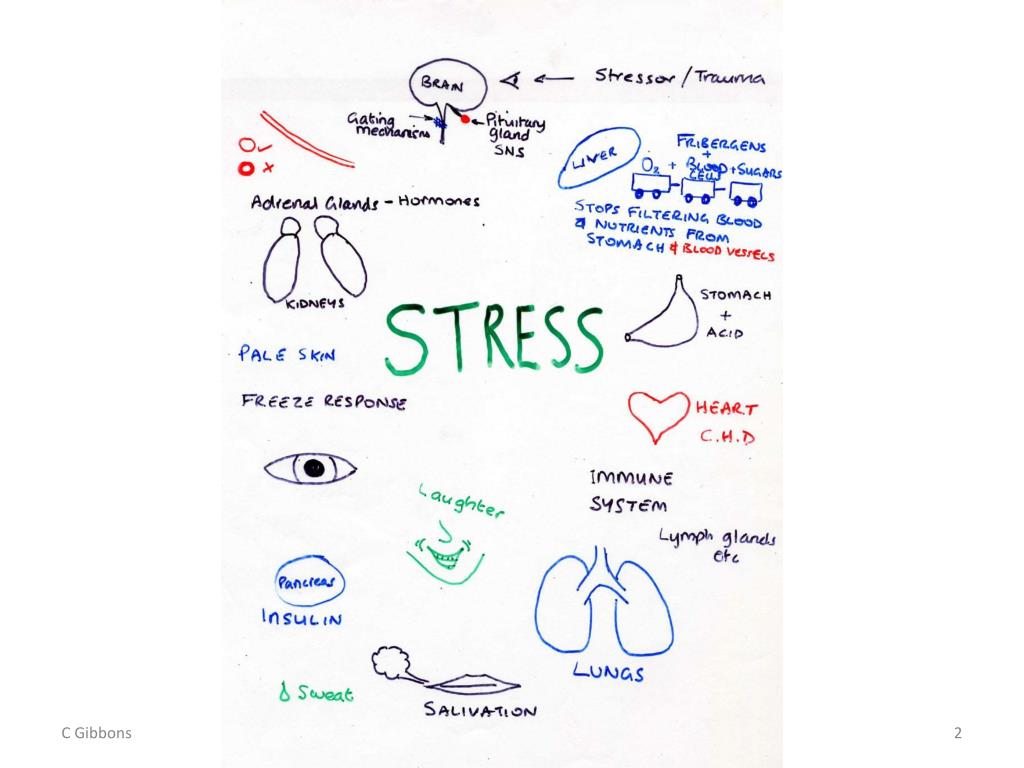 BRAIN
Stressor / Trauma
Gating
mechanism
Pituitary
gland
SNS
LIVER
FRIBERGENS
+
O₂ + BLOOD + SUGARS
CELL
STOPS FILTERING BLOOD
& NUTRIENTS FROM
STOMACH & BLOOD VESSELS
Adrenal Glands - Hormones
KIDNEYS
STOMACH
+
ACID
STRESS
PALE SKIN
FREEZE RESPONSE
HEART
C.H.D
IMMUNE
SYSTEM
Laughter
Lymph glands
etc
Pancreas
INSULIN
LUNGS
Sweat
SALIVATION
C Gibbons
2